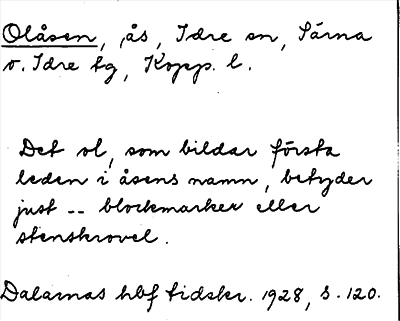 Olåsen, ås, Idre sn, Särna
o. Idre tg, Kopp. l.
Det ol, som bildar första
leden i åsens namn, betyder
just -- blockmarker eller
stenskrovel.
Dalarnas hbf tidskr. 1928, s. 120.